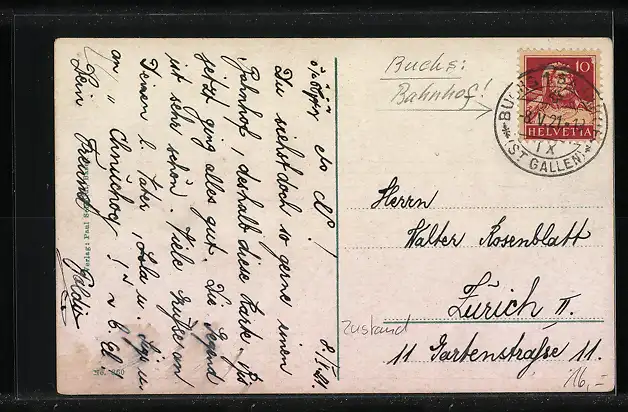 8/V 21.
Du siehst doch so gerne einen
Bahnhof, deshalb diese Karte. Bis
jetzt ging alles gut. Die Gegend
ist sehr schön. Viele Grüsse an
Deinen l. Vater, u.
an
Dein Freund
Verlag: Paul
No. 260
Buchs:
Bahnhof!
10
HELVETIA
8.V.21
IX
(ST GALLEN)
Herrn
Walter Rosenblatt
Zürich II.
11 Gartenstraße 11.
Zustand
16,-